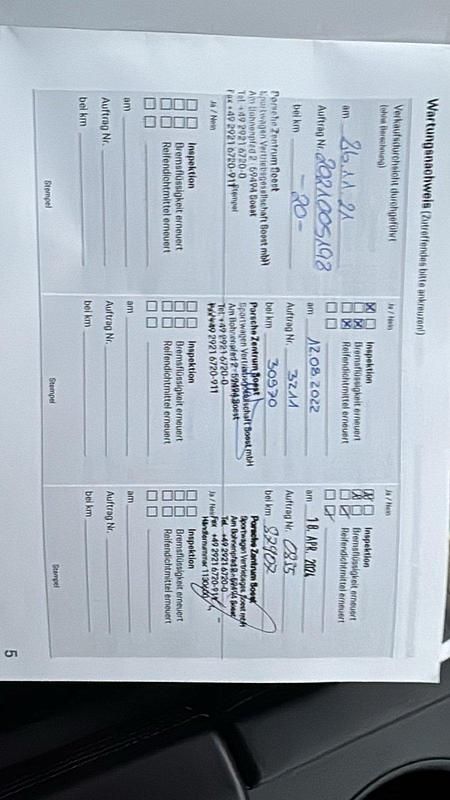 Wartungsnachweis (Zutreffendes bitte ankreuzen!)
Verkaufsdurchsicht durchgeführt
(ohne Berechnung)
am 26.11.21
Auftrag Nr. 2021005198
bei km -20-
Porsche Zentrum Soest
Sportwagen Vertriebsgesellschaft Soest mbH
Am Bohnenpfad 2 · 59494 Soest
Tel. +49 2921 6720-0
Fax +49 2921 6720-911
Stempel
Ja / Nein
Inspektion
Bremsflüssigkeit erneuert
Reifendichtmittel erneuert
am 12.08.2022
Auftrag Nr. 3211
bei km 30970
Porsche Zentrum Soest
Sportwagen Vertriebsgesellschaft Soest mbH
Am Bohnenpfad 2 · 59494 Soest
Tel. +49 2921 6720-0
Fax +49 2921 6720-911
Ja / Nein
Inspektion
Bremsflüssigkeit erneuert
Reifendichtmittel erneuert
am 18. APR. 2024
Auftrag Nr. 0235
bei km 82902
Porsche Zentrum Soest
Sportwagen Vertriebsges. Soest mbH
Am Bohnenpfad 2 · 59494 Soest
Tel. +49 2921 6720-0
Fax +49 2921 6720-911
Händlernummer
Ja / Nein
Inspektion
Bremsflüssigkeit erneuert
Reifendichtmittel erneuert
am
Auftrag Nr.
bei km
Stempel
Inspektion
Bremsflüssigkeit erneuert
Reifendichtmittel erneuert
am
Auftrag Nr.
bei km
Stempel
Ja / Nein
Inspektion
Bremsflüssigkeit erneuert
Reifendichtmittel erneuert
am
Auftrag Nr.
bei km
Stempel
5